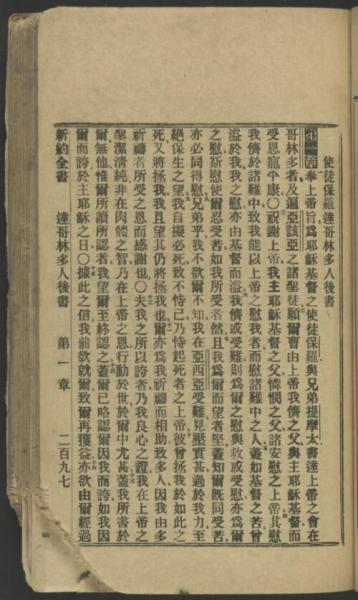 使徒保羅達哥林多人後書
奉上帝旨爲耶穌基督之使徒保羅與兄弟提摩太書達上帝之會在
哥林多者及遍亞該亞之諸聖徒願爾曹由上帝我儕之父與主耶穌基督而
受恩寵平康○祝謝上帝我主耶穌基督之父憐憫之父諸安慰之上帝其慰
我儕於諸難中致我能以上帝之慰我者而慰諸難中之人蓋如基督之苦曾
溢於我我之慰亦由基督而溢我儕或受難則爲爾之慰與救或受慰亦爲爾
之慰斯慰使爾忍受苦如我所受者然且我爲爾而望者堅蓋知爾既同受苦
亦必同得慰兄弟乎我不欲爾不知我在亞西亞受難見壓實甚過於我力至
絕保生之望我自擬必死致不恃己乃恃起死者之上帝彼曾拯我於如此之
死又將拯我我且望其仍將拯我也爾亦爲我祈禱而相助致多人因我由多
祈禱者所受之恩而感謝也○夫我之所以誇者乃我良心之證我在上帝之
聖潔清純非在肉體之智乃在上帝之恩行動於世於爾中尤甚蓋我所書於
爾無他惟爾所讀所認者我望爾至終認之蓋爾已略認爾因我而誇如我因
爾而誇於主耶穌之日○據此之信我前欲就爾致爾再獲益亦欲由爾經過
新約全書 達哥林多人後書 第一章 二百九七